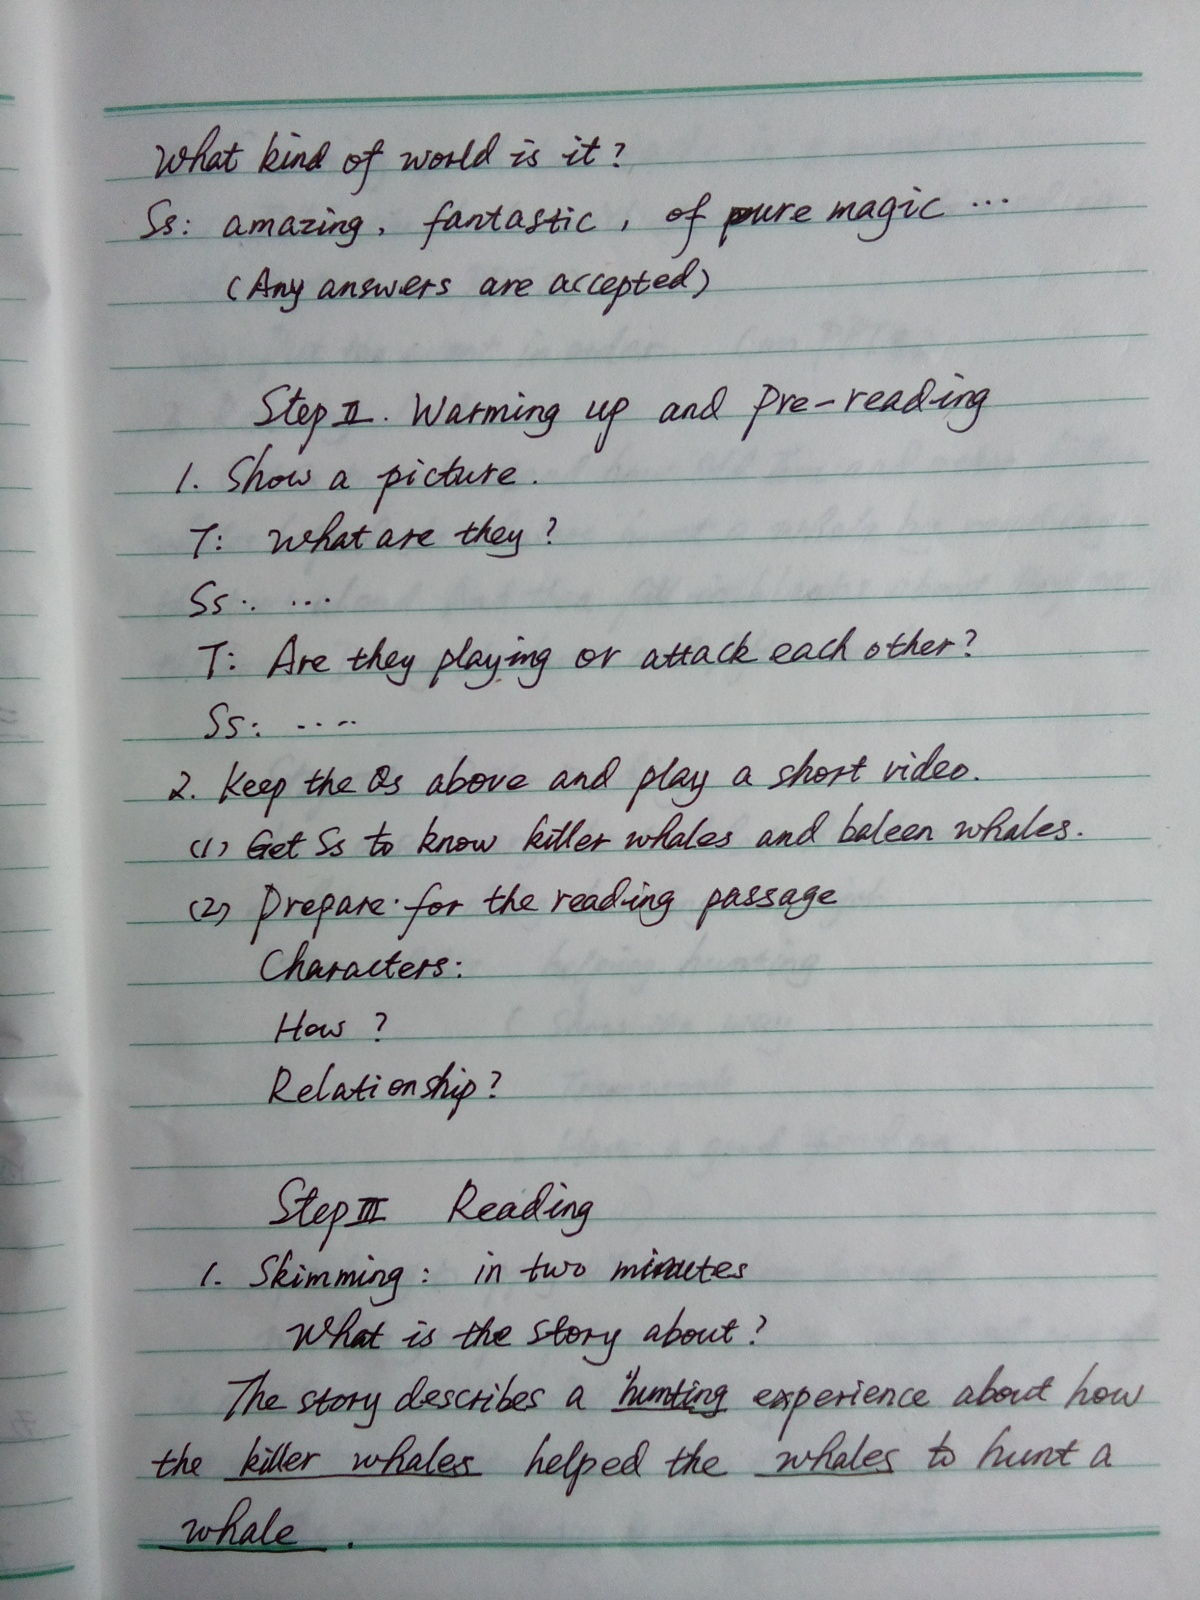 What kind of world is it?
Ss: amazing, fantastic, of pure magic ...
(Any answers are accepted)
Step II. Warming up and Pre-reading
1. Show a picture.
T: What are they?
Ss: ...
T: Are they playing or attack each other?
Ss: .....
2. Keep the Qs above and play a short video.
(1) Get Ss to know killer whales and baleen whales.
(2) Prepare for the reading passage
Characters:
How?
Relationship?
Step III Reading
1. Skimming: in two minutes
What is the story about?
The story describes a hunting experience about how
the killer whales helped the whales to hunt a
whale.